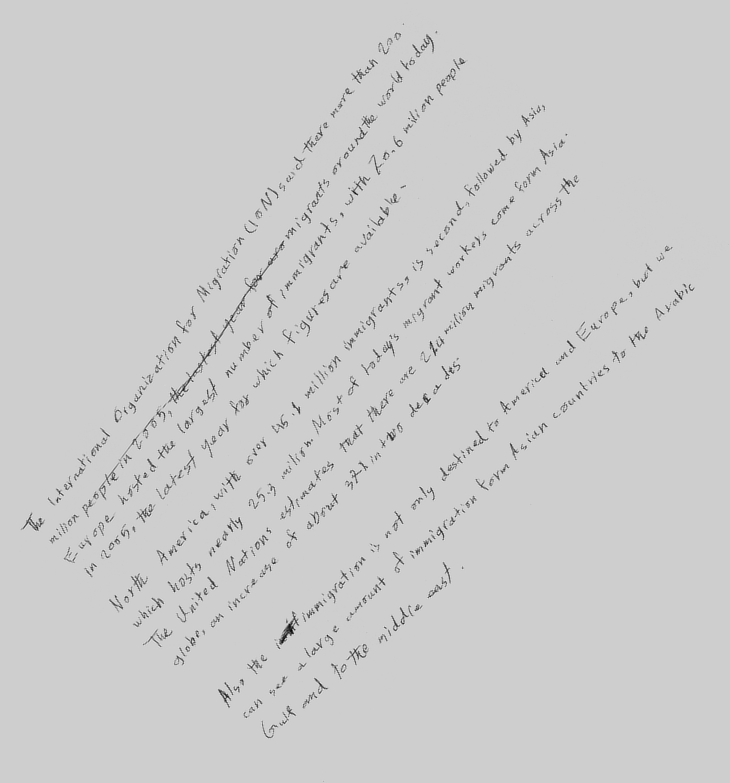 The International Organization for Migration (IOM) said there more than 200
million people in 2005, migrants around the world today.
Europe hosted the largest number of immigrants, with 20.6 million people
in 2005, the latest year for which figures are available.
North America, with over 45.1 million immigrants, is second, followed by Asia,
which hosts nearly 25.3 milion. Most of today's migrant workers come form Asia.
The United Nations estimates that there are 214 milion migrants across the
globe, an increase of about 37% in two decades.
Also the immigration is not only destined to America and Europe, but we
can see a large amount of immigration form Asian countries to the Arabic
Gulf and to the middle east.